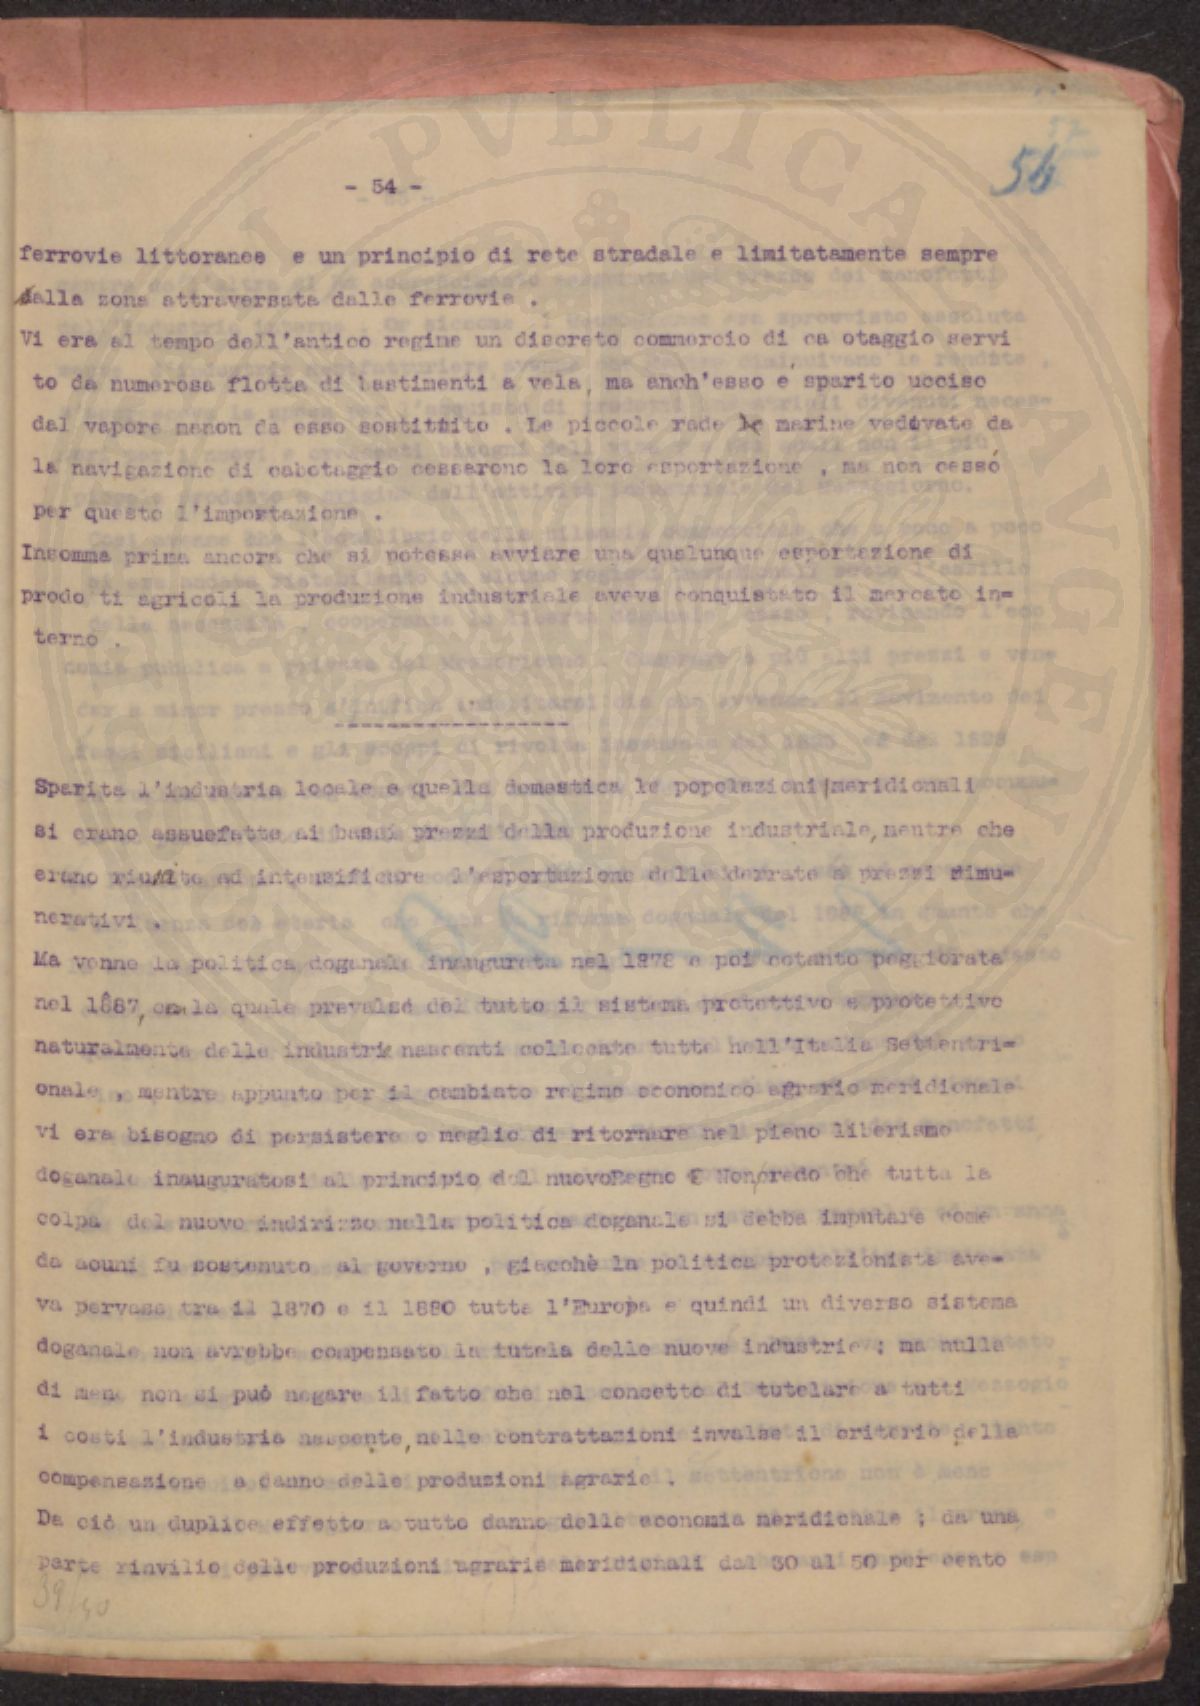 - 54 -
54
ferrovie littoranee e un principio di rete stradale e limitatamente sempre
dalla zona attraversata dalle ferrovie .
Vi era al tempo dell'antico regime un discreto commercio di ca otaggio servi
to da numerosa flotta di bastimenti a vela, ma anch'esso è sparito ucciso
dal vapore manon da esso sostituito . Le piccole rade le marine vedovate da
la navigazione di cabotaggio cessarono la loro esportazione , ma non cessó
per questo l'importazione .
Insomma prima ancora che si potesse avviare una qualunque esportazione di
prodo ti agricoli la produzione industriale aveva conquistato il mercato in=
terno .
--------------------
Sparita l'industria locale e quella domestica le popolazioni meridionali
si erano assuefatte ai bassi prezzi della produzione industriale, mentre che
erano riuscite ad intensificare l'esportazione delle derrate a prezzi rimu-
nerativi .
Ma venne la politica doganale inaugurata nel 1878 e poi cotanto peggiorata
nel 1887, la quale prevalse del tutto il sistema protettivo e protettivo
naturalmente delle industrie nascenti collocate tutte nell'Italia Settentri=
onale , mentre appunto per il cambiato regime economico agrario meridionale
vi era bisogno di persistere o meglio di ritornare nel pieno liberismo
doganale inauguratosi al principio del nuovoRegno Noncredo che tutta la
colpa del nuovo indirizzo nella politica doganale si debba imputare come
da acuni fu sostenuto al governo , giacchè la politica protezionista ave-
va pervasa tra il 1870 e il 1880 tutta l'Europa e quindi un diverso sistema
doganale non avrebbe compensato la tutela delle nuove industrie ; ma nulla
di meno non si può negare il fatto che nel concetto di tutelare a tutti
i costi l'industria nascente, nelle contrattazioni invalse il criterio della
compensazione a danno delle produzioni agrarie .
Da ciò un duplice effetto a tutto danno delle economia meridionale ; da una
parte rinvilio delle produzioni agrarie meridionali dal 30 al 50 per cento
39/40